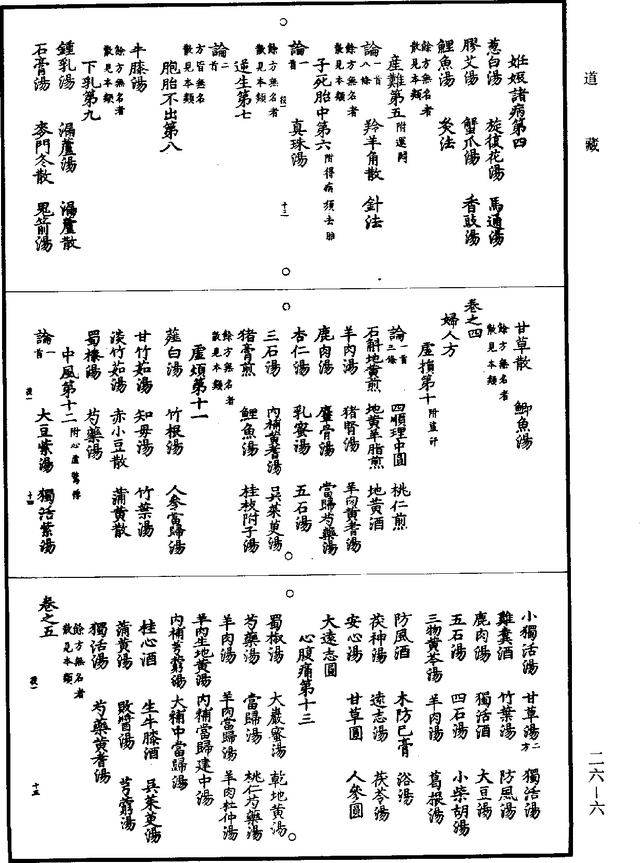 道藏
妊娠諸病第四
葱白湯　旋復花湯　馬通湯
膠艾湯　蟹爪湯　香豉湯
鯉魚湯　灸法
餘方無名者散見本類
產難第五附運悶
論一首八條　羚羊角散　針法
餘方無名者散見本類
子死胎中第六附得病須去胎
論一首　真珠湯
餘方無名者散見本類
逆生第七
論二首
方皆無名散見本類
胞胎不出第八
牛膝湯
餘方無名者散見本類
下乳第九
鍾乳湯　漏蘆湯　漏蘆散
石膏湯　麥門冬散　鬼箭湯
目一　十三
甘草散　鯽魚湯
餘方無名者散見本類
卷之四
婦人方
虛損第十附盜汗
論一首三條　四順理中圓　桃仁煎
石斛地黃煎　地黃羊脂煎　地黃酒
羊肉湯　猪腎湯　羊肉黃耆湯
鹿肉湯　麞骨湯　當歸芍藥湯
杏仁湯　乳蜜湯　五石湯
三石湯　內補黃耆湯　吳茱萸湯
猪膏煎　鯉魚湯　桂枝附子湯
餘方無名者散見本類
虛煩第十一
薤白湯　竹根湯　人參當歸湯
甘竹茹湯　知母湯　竹葉湯
淡竹茹湯　赤小豆散　蒲黃散
蜀漆湯　芍藥湯
中風第十二附心虛驚悸
論一首　大豆紫湯　獨活紫湯
目一　十四
小獨活湯　甘草湯方二　獨活湯
雞糞酒　竹葉湯　防風湯
鹿肉湯　獨活酒　大豆湯
五石湯　四石湯　小柴胡湯
三物黃芩湯　羊肉湯　葛根湯
防風酒　木防已膏　浴湯
茯神湯　遠志湯　茯苓湯
安心湯　甘草圓　人參圓
大遠志圓
心腹痛第十三
蜀椒湯　大巖蜜湯　乾地黃湯
芍藥湯　當歸湯　桃仁芍藥湯
羊肉湯　羊肉當歸湯　羊肉杜仲湯
羊肉生地黃湯　內補當歸建中湯
內補芎藭湯　大補中當歸湯
桂心酒　生牛膝酒　吳茱萸湯
蒲黃湯　敗醬湯　芎藭湯
獨活湯　芍藥黃耆湯
餘方無名者散見本類
卷之五
目一　十五
二六—六